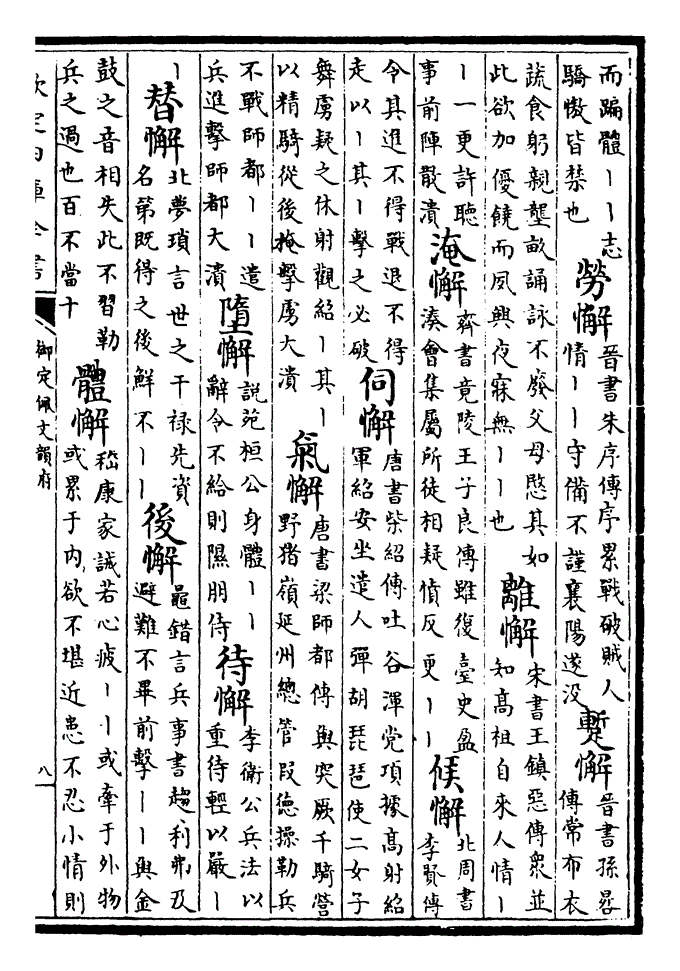 而蹁體丨丨志
驕慠皆禁也
勞懈
晉書朱序傳序累戰破賊人
情丨丨守備不謹襄陽遂没
蹔懈
晉書孫晷
傳常布衣
蔬食躬親壟畝誦詠不廢父母愍其如
此欲加優饒而夙興夜寐無丨丨也
離懈
宋書王鎮惡傳衆並
知髙祖自來人情丨
丨一更許聽
事前陣散潰
淹懈
齊書竟陵王子良傳雖復臺史盈
湊會集屬所徒相疑憤反更丨丨
候懈
北周書
李賢傳
令其進不得戰退不得
走以丨其丨擊之必破
伺懈
唐書柴紹傳吐谷渾党項據髙射紹
軍紹安坐遣人彈胡琵琶使二女子
舞虜疑之休射觀紹丨其丨
以精騎從後掩擊虜大潰
氣懈
唐書梁師都傳與突厥千騎營
野猪嶺延州總管段德操勒兵
不戰師都丨丨遣
兵進擊師都大潰
墮懈
説苑桓公身體丨丨
辭令不給則隰朋侍
待懈
李衛公兵法以
重待輕以嚴丨
丨
替懈
北夢瑣言世之干禄先資
名第既得之後鮮不丨丨
後懈
鼂錯言兵事書趨利弗及
避難不畢前擊丨丨與金
鼓之音相失此不習勒
兵之過也百不當十
體懈
嵇康家誡若心疲丨丨或牽于外物
或累于内欲不堪近患不忍小情則
欽定四庫全書
御定佩文韻府
八